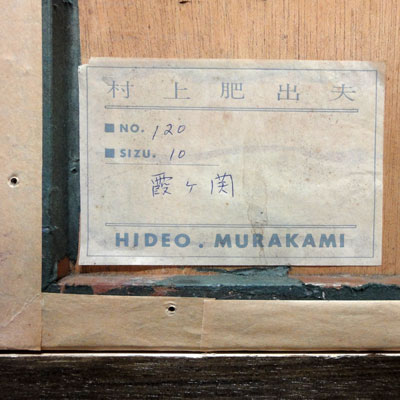 村上肥出夫
■ NO. 120
■ SIZU. 10
霞ヶ関
HIDEO. MURAKAMI